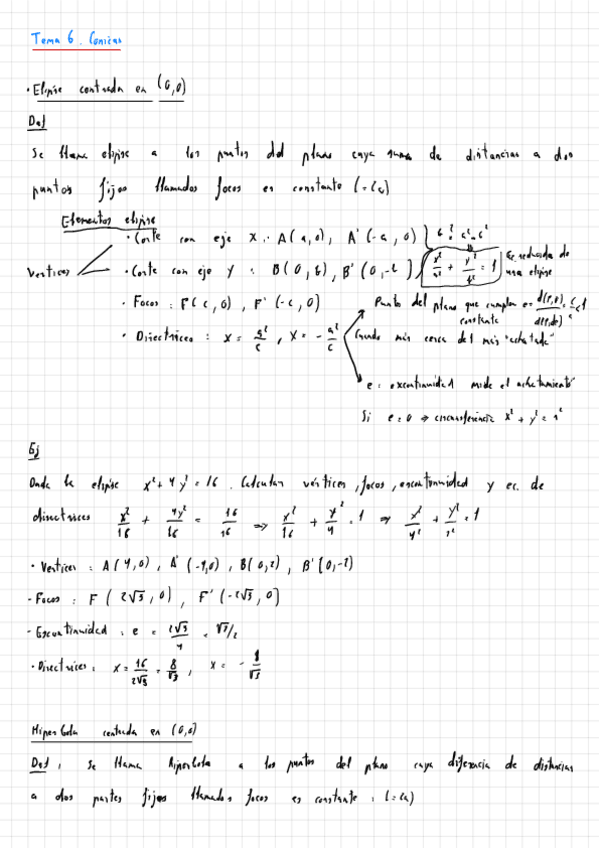 Tema 6. Conicas
· Elipse centrada en (0,0)
Def
Se llama elipse a los puntos del plano cuya suma de distancias a dos
puntos fijos llamados focos es constante (=2a)
Elementos elipse
Vertices
· Corte con eje X: A(a,0), A'(-a,0)
· Corte con eje Y: B(0,b), B'(0,-b)
x²/a² + y²/b² = 1
Ec reducida de
una elipse
· Focos: F(c,0), F'(-c,0)
· Directrices: x = a²/c, x = -a²/c
Puntos del plano que cumplen e =
constante
Cuando más cerca del más "achatada"
e = excentricidad mide el achatamiento
Si e=0 ⇒ circunferencia x² + y² = r²
Ej
Dada la elipse x² + 4y² = 16. Calcular vértices, focos, excentricidad y ec. de
directrices x²/16 + 4y²/16 = 16/16 ⇒ x²/16 + y²/4 = 1 ⇒ x²/4² + y²/2² = 1
· Vertices: A(4,0), A'(-4,0), B(0,2), B'(0,-2)
- Focos: F(2√3,0), F'(-2√3,0)
- Excentricidad: e = 2√3/4 = √3/2
· Directrices: x = 16/2√3 = 8/√3, x = -8/√3
Hiperbola centrada en (0,0)
Def: Se llama hiperbola a los puntos del plano cuya diferencia de distancias
a dos puntos fijos llamados focos es constante: (=2a)